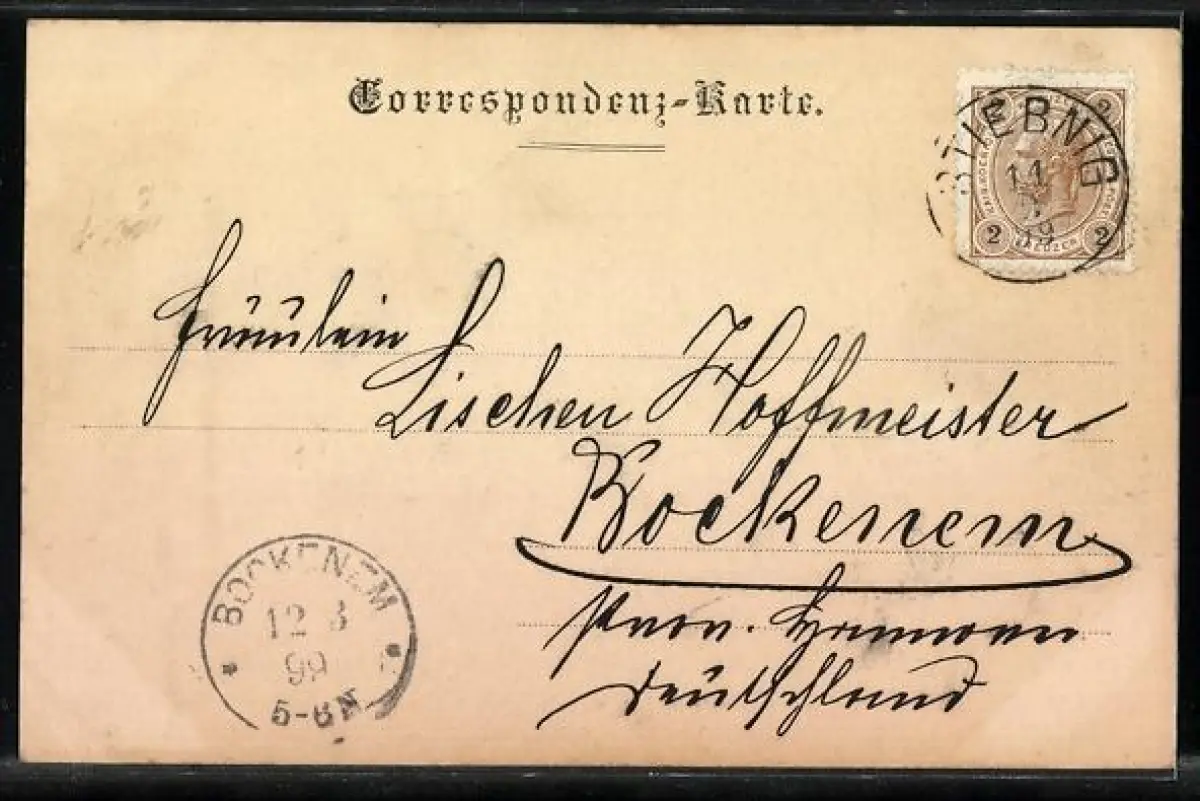 Correspondenz-Karte.
STIEBNIG
11
99
2 2
2 2
KREUZER
Fräulein
Lischen Hoffmeister
Bockenem
Prov. Hannover
Deutschland
BOCKENEM
12 3
99
5-6N